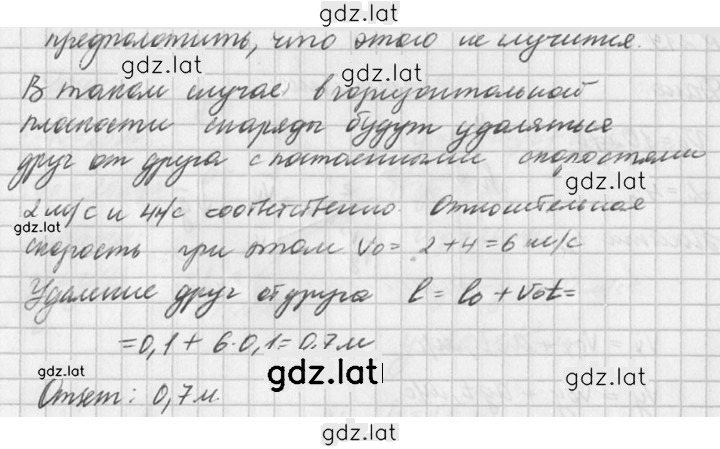 gdz.lat
предположить, что этого не случится.
gdz.lat gdz.lat
В таком случае в горизонтальной
плоскости снаряды будут удаляться
друг от друга с постоянными скоростями
gdz.lat
2 м/с и 4 м/с соответственно. Относительная
gdz.lat
скорость при этом v₀ = 2 + 4 = 6 м/с
Удаление друг от друга l = l₀ + v₀t =
= 0,1 + 6·0,1 = 0.7 м
gdz.lat gdz.lat gdz.lat
Ответ: 0,7 м.
gdz.lat